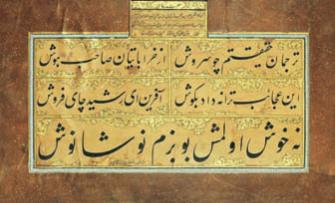 ترجمان حقیقتم چو سروش از خراباتیان صاحب هوش
این عجایب ترانه داد بگوش آفرین ای رشید چای فروش
نه خوش اولمش بو بزم نوشانوش